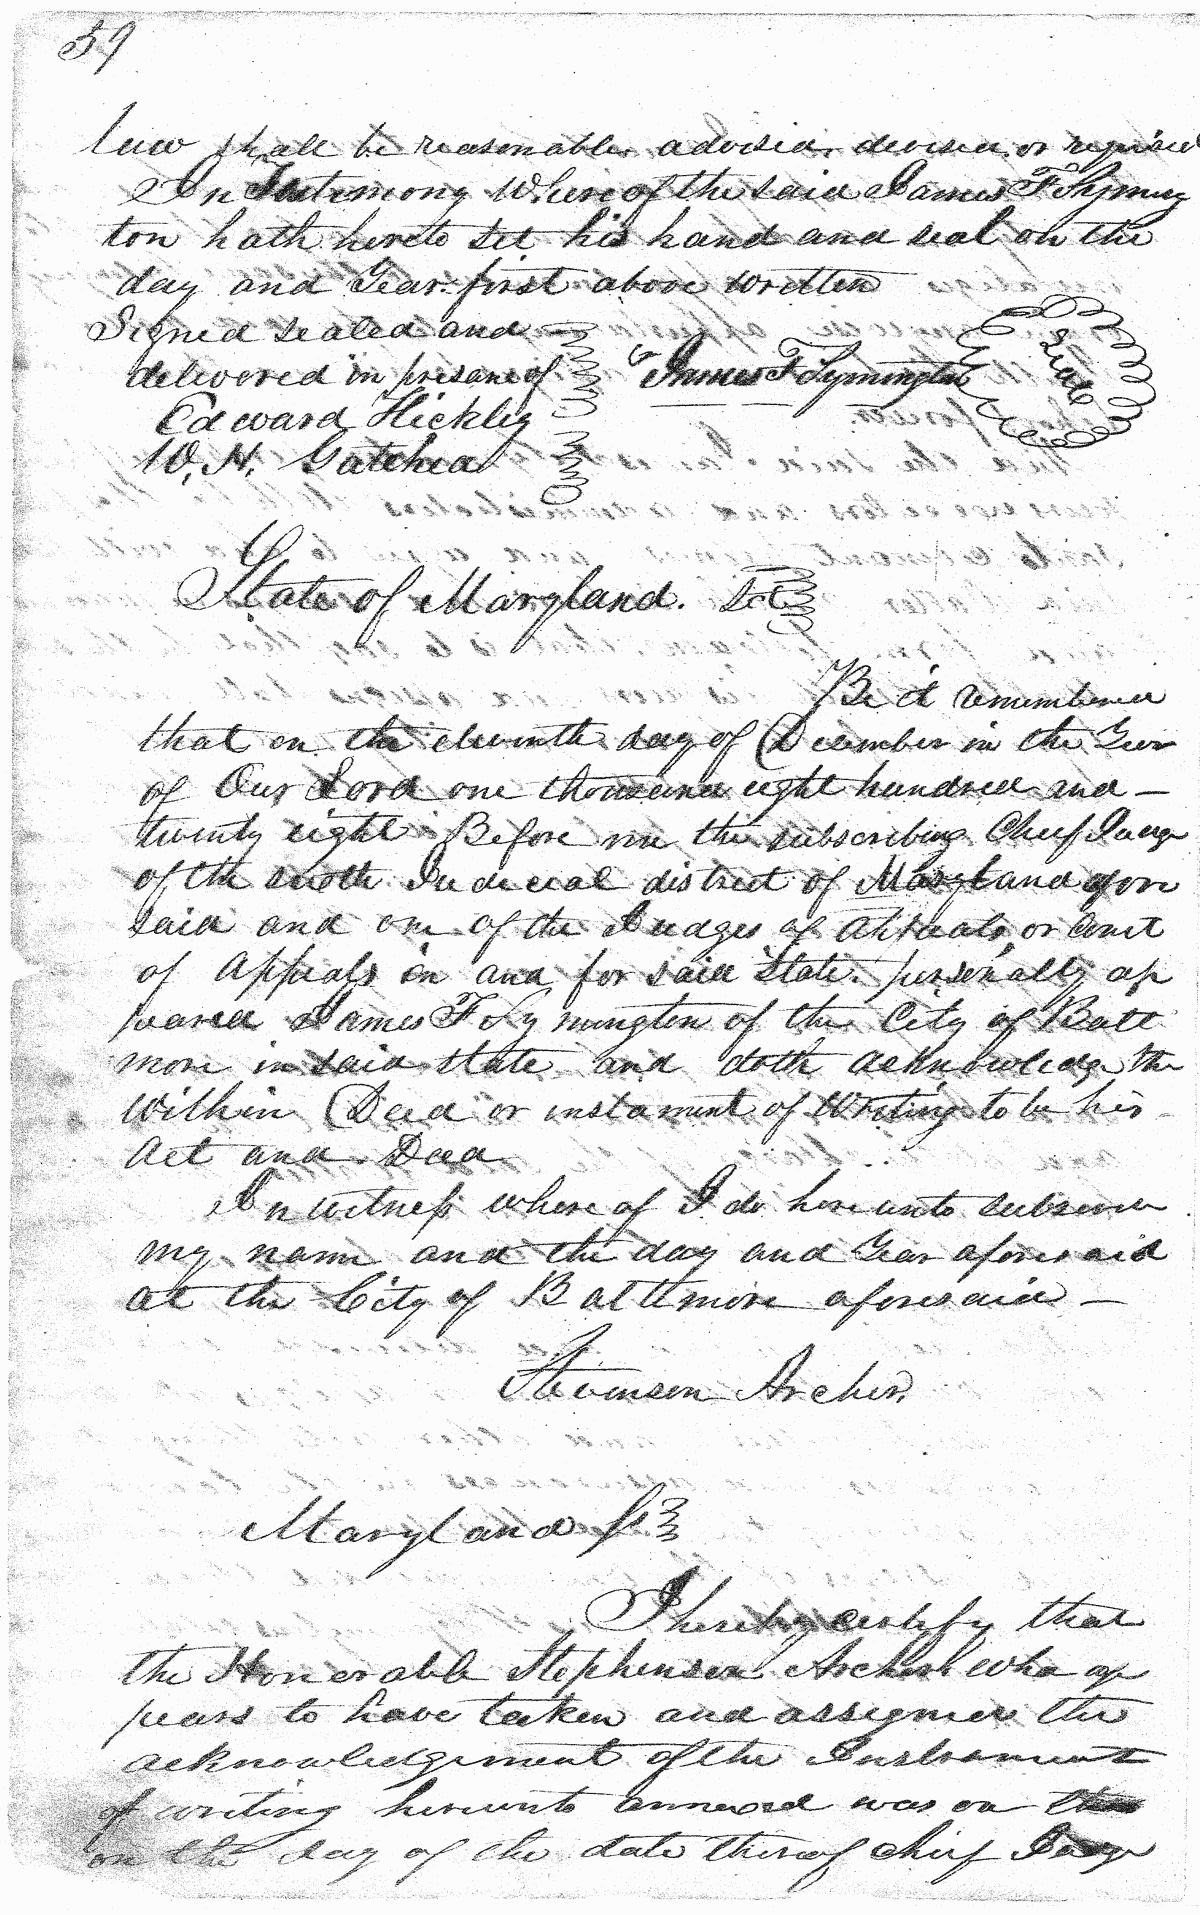 59
law shall be reasonable advised, devised or required
In Testimony Where of the said James F Syming
ton hath hereto set his hand and seal on the
day and Year first above written
Signed sealed and
delivered in presence of James F Symington Seal
Edward Hickley
W. H. Gatchea
State of Maryland. Sct
Be it remembered
that on the eleventh day of December in the Year
of Our Lord one thousand eight hundred and —
twenty eight Before me the subscribing Chief Judge
of the sixth Judicial district of Maryland afore
said and one of the Judges of Appeals, or Court
of Appeals in and for said State. personally ap
peared James F Symington of the City of Balt
more in said state and doth acknowledge the
Within Deed or instament of Writing to be his
Act and Deed
In witness where of I do here unto subscribe
my name and the day and Year aforesaid
at the City of Baltimore aforesaid —
Stevenson Archer,
Maryland Sc
I hereby certify that
the Honorable Stephenson Archer who ap
pears to have taken and assigned the
acknowledgement of the Instrument
of writing hereunto annexed was on the
on the day of the date thereof chief Judge